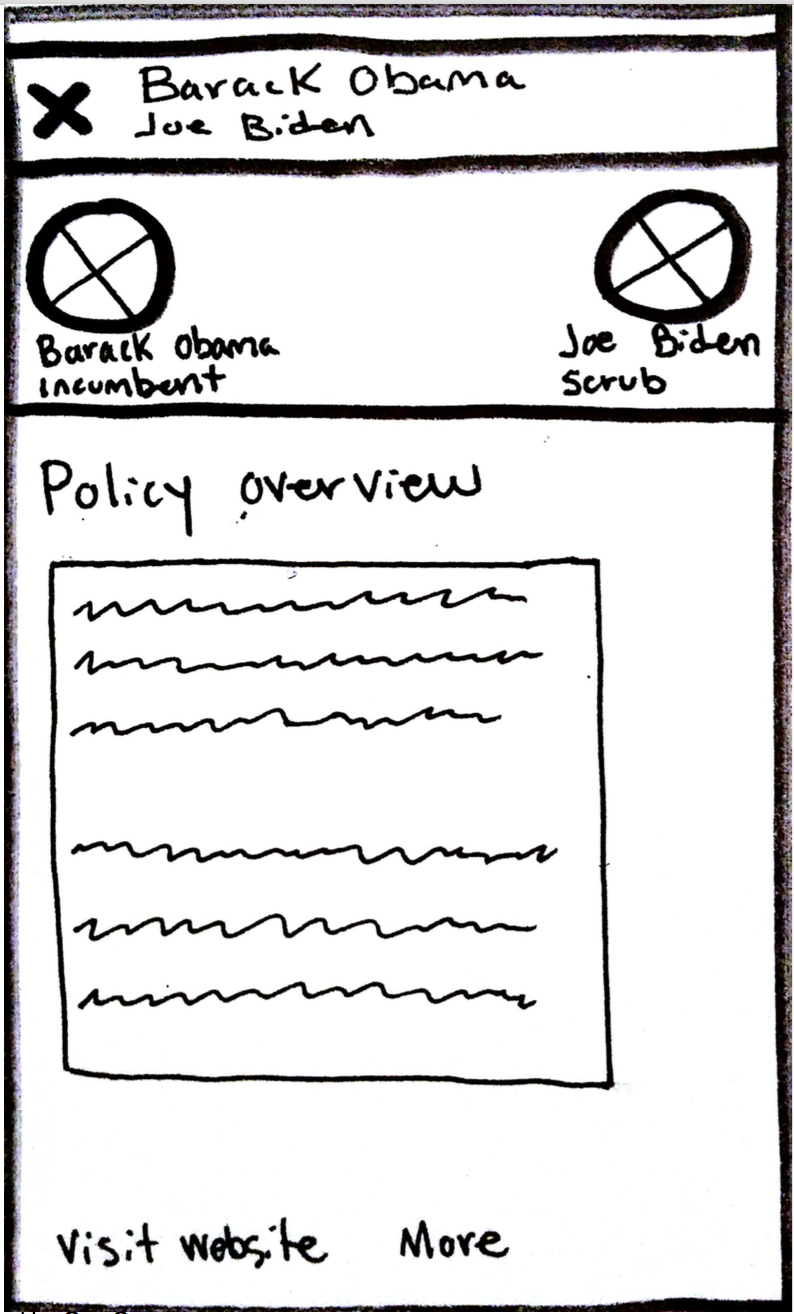 Barack Obama
Joe Biden
Barack Obama
incumbent
Joe Biden
Scrub
Policy overview
Visit website More